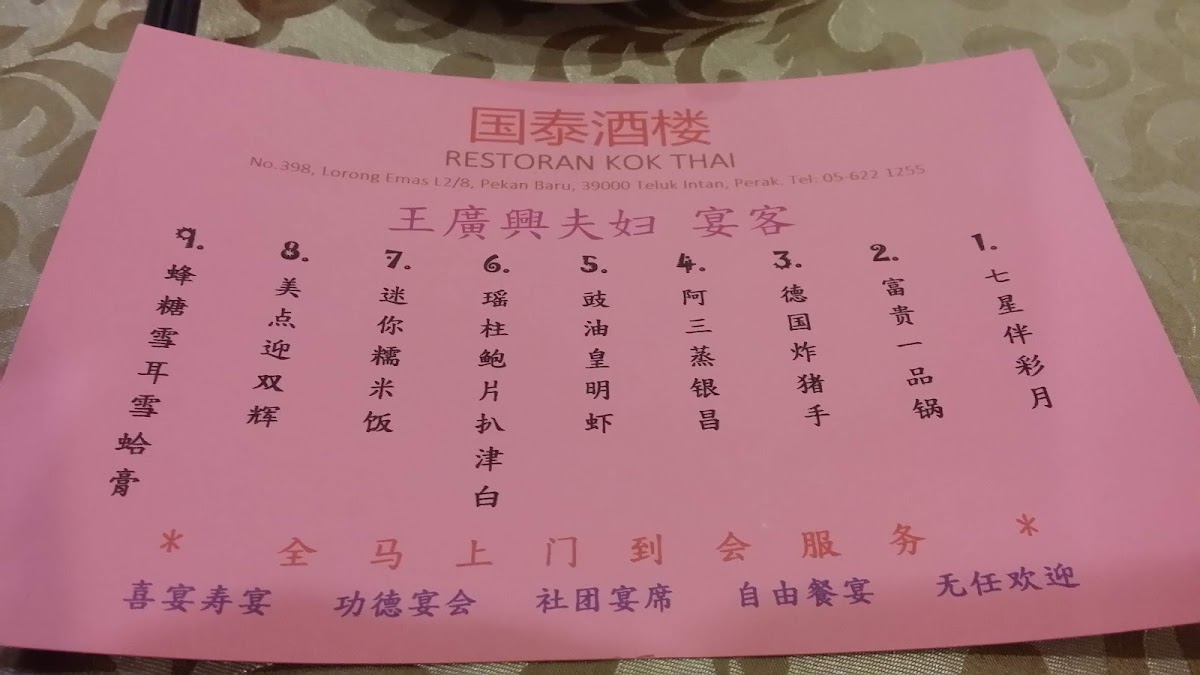 国泰酒楼
RESTORAN KOK THAI
No.398, Lorong Emas L2/8, Pekan Baru, 39000 Teluk Intan, Perak. Tel: 05-622 1255
王廣興夫妇 宴客
1. 七星伴彩月
2. 富贵一品锅
3. 德国炸猪手
4. 阿三蒸银昌
5. 豉油皇明虾
6. 瑶柱鲍片扒津白
7. 迷你糯米饭
8. 美点迎双辉
9. 蜂糖雪耳雪蛤膏
* 全马上门到会服务 *
喜宴寿宴 功德宴会 社团宴席 自由餐宴 无任欢迎